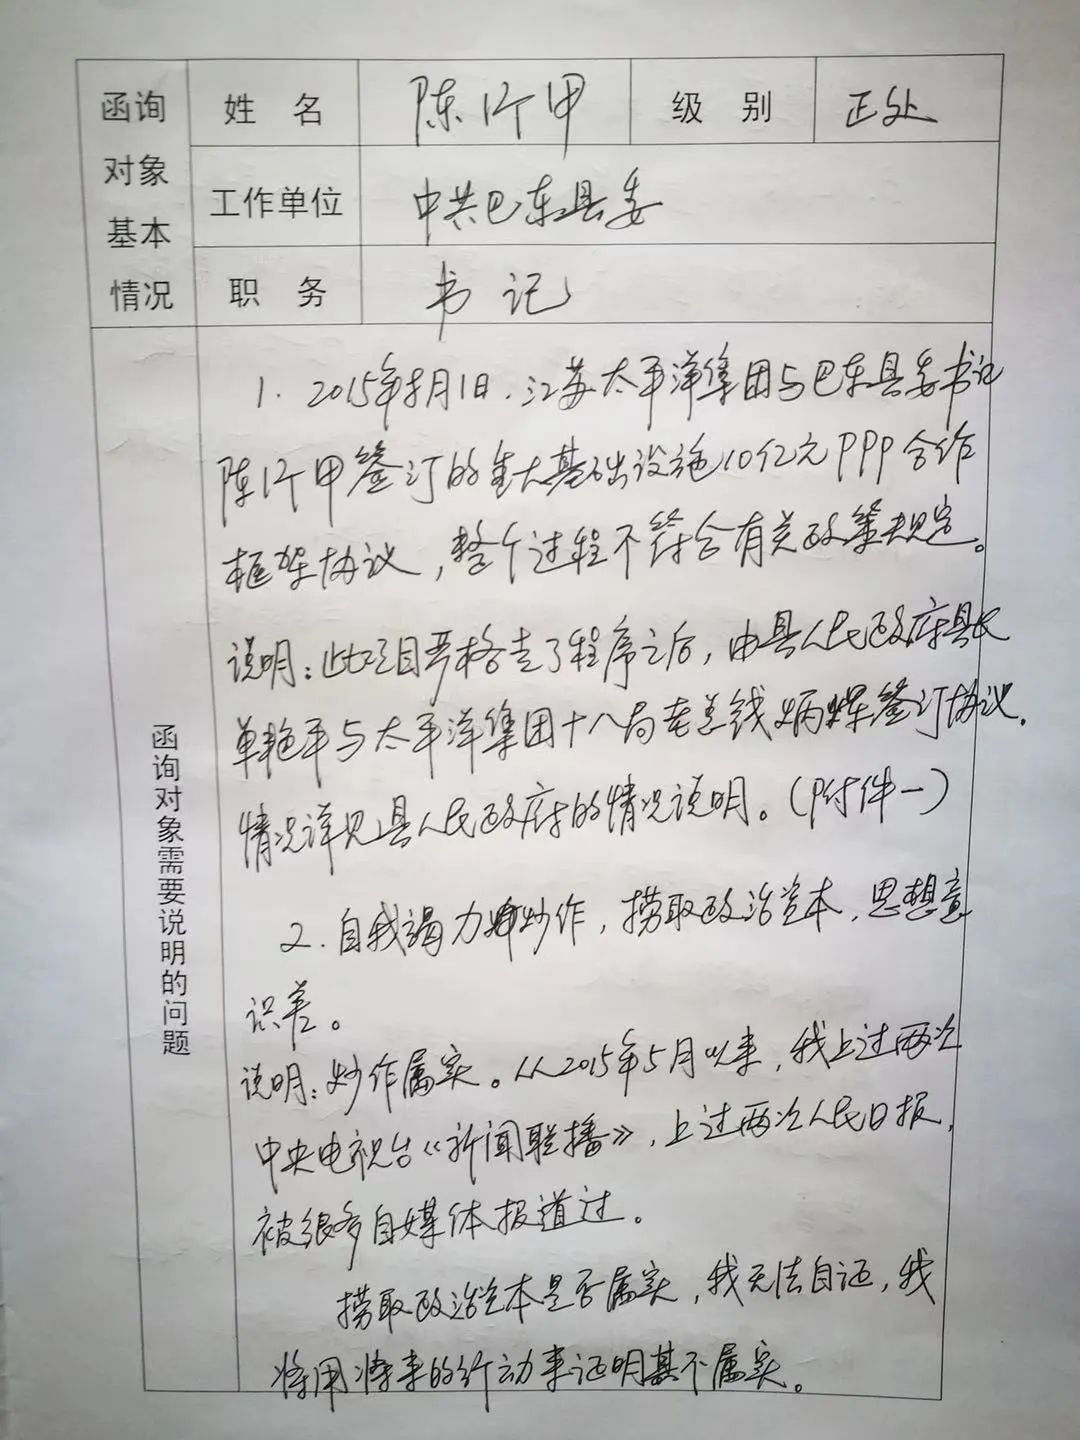 函询对象基本情况
姓 名 陈行甲 级 别 正处
工作单位 中共巴东县委
职 务 书记
函询对象需要说明的问题
1. 2015年8月1日,江苏太平洋集团与巴东县委书记
陈行甲签订的重大基础设施10亿元PPP合作
框架协议,整个过程不符合有关政策规定。
说明:此项目严格走了程序之后,由县人民政府县长
单艳平与太平洋集团十八局老总钱炳 签订协议.
情况详见县人民政府的情况说明。(附件一)
2. 自我竭力炒作,捞取政治资本,思想意
识差。
说明:炒作属实。从2015年5月以来,我上过两次
中央电视台《新闻联播》,上过两次人民日报,
被很多自媒体报道过。
捞取政治资本是否属实,我无法自证,我
将用将来的行动来证明其不属实。